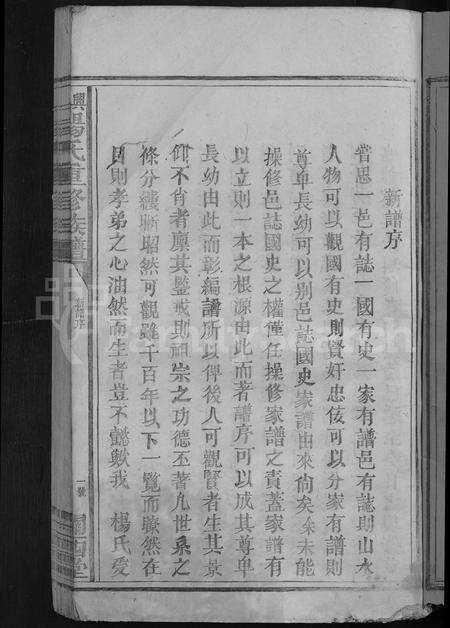 新譜序
嘗思一邑有誌一國有史一家有譜邑有誌則山水
人物可以觀國有史則賢奸忠佞可以分家有譜則
尊卑長幼可以别邑誌國史家譜由來尚矣予未能
操修邑誌國史之權僅任操修家譜之責蓋家譜有
以立則一本之根源由此而著譜序可以成其尊卑
長幼由此而彰編譜所以俾後人可觀賢者生其景
仰不肖者凜其鑒戒則祖宗之功德丕著凡世系之
條分縷晰昭然可觀雖千百年以下一覽而瞭然在
目則孝弟之心油然而生者豈不懿歟我 楊氏爰
楊氏重修族譜
新譜序
一號